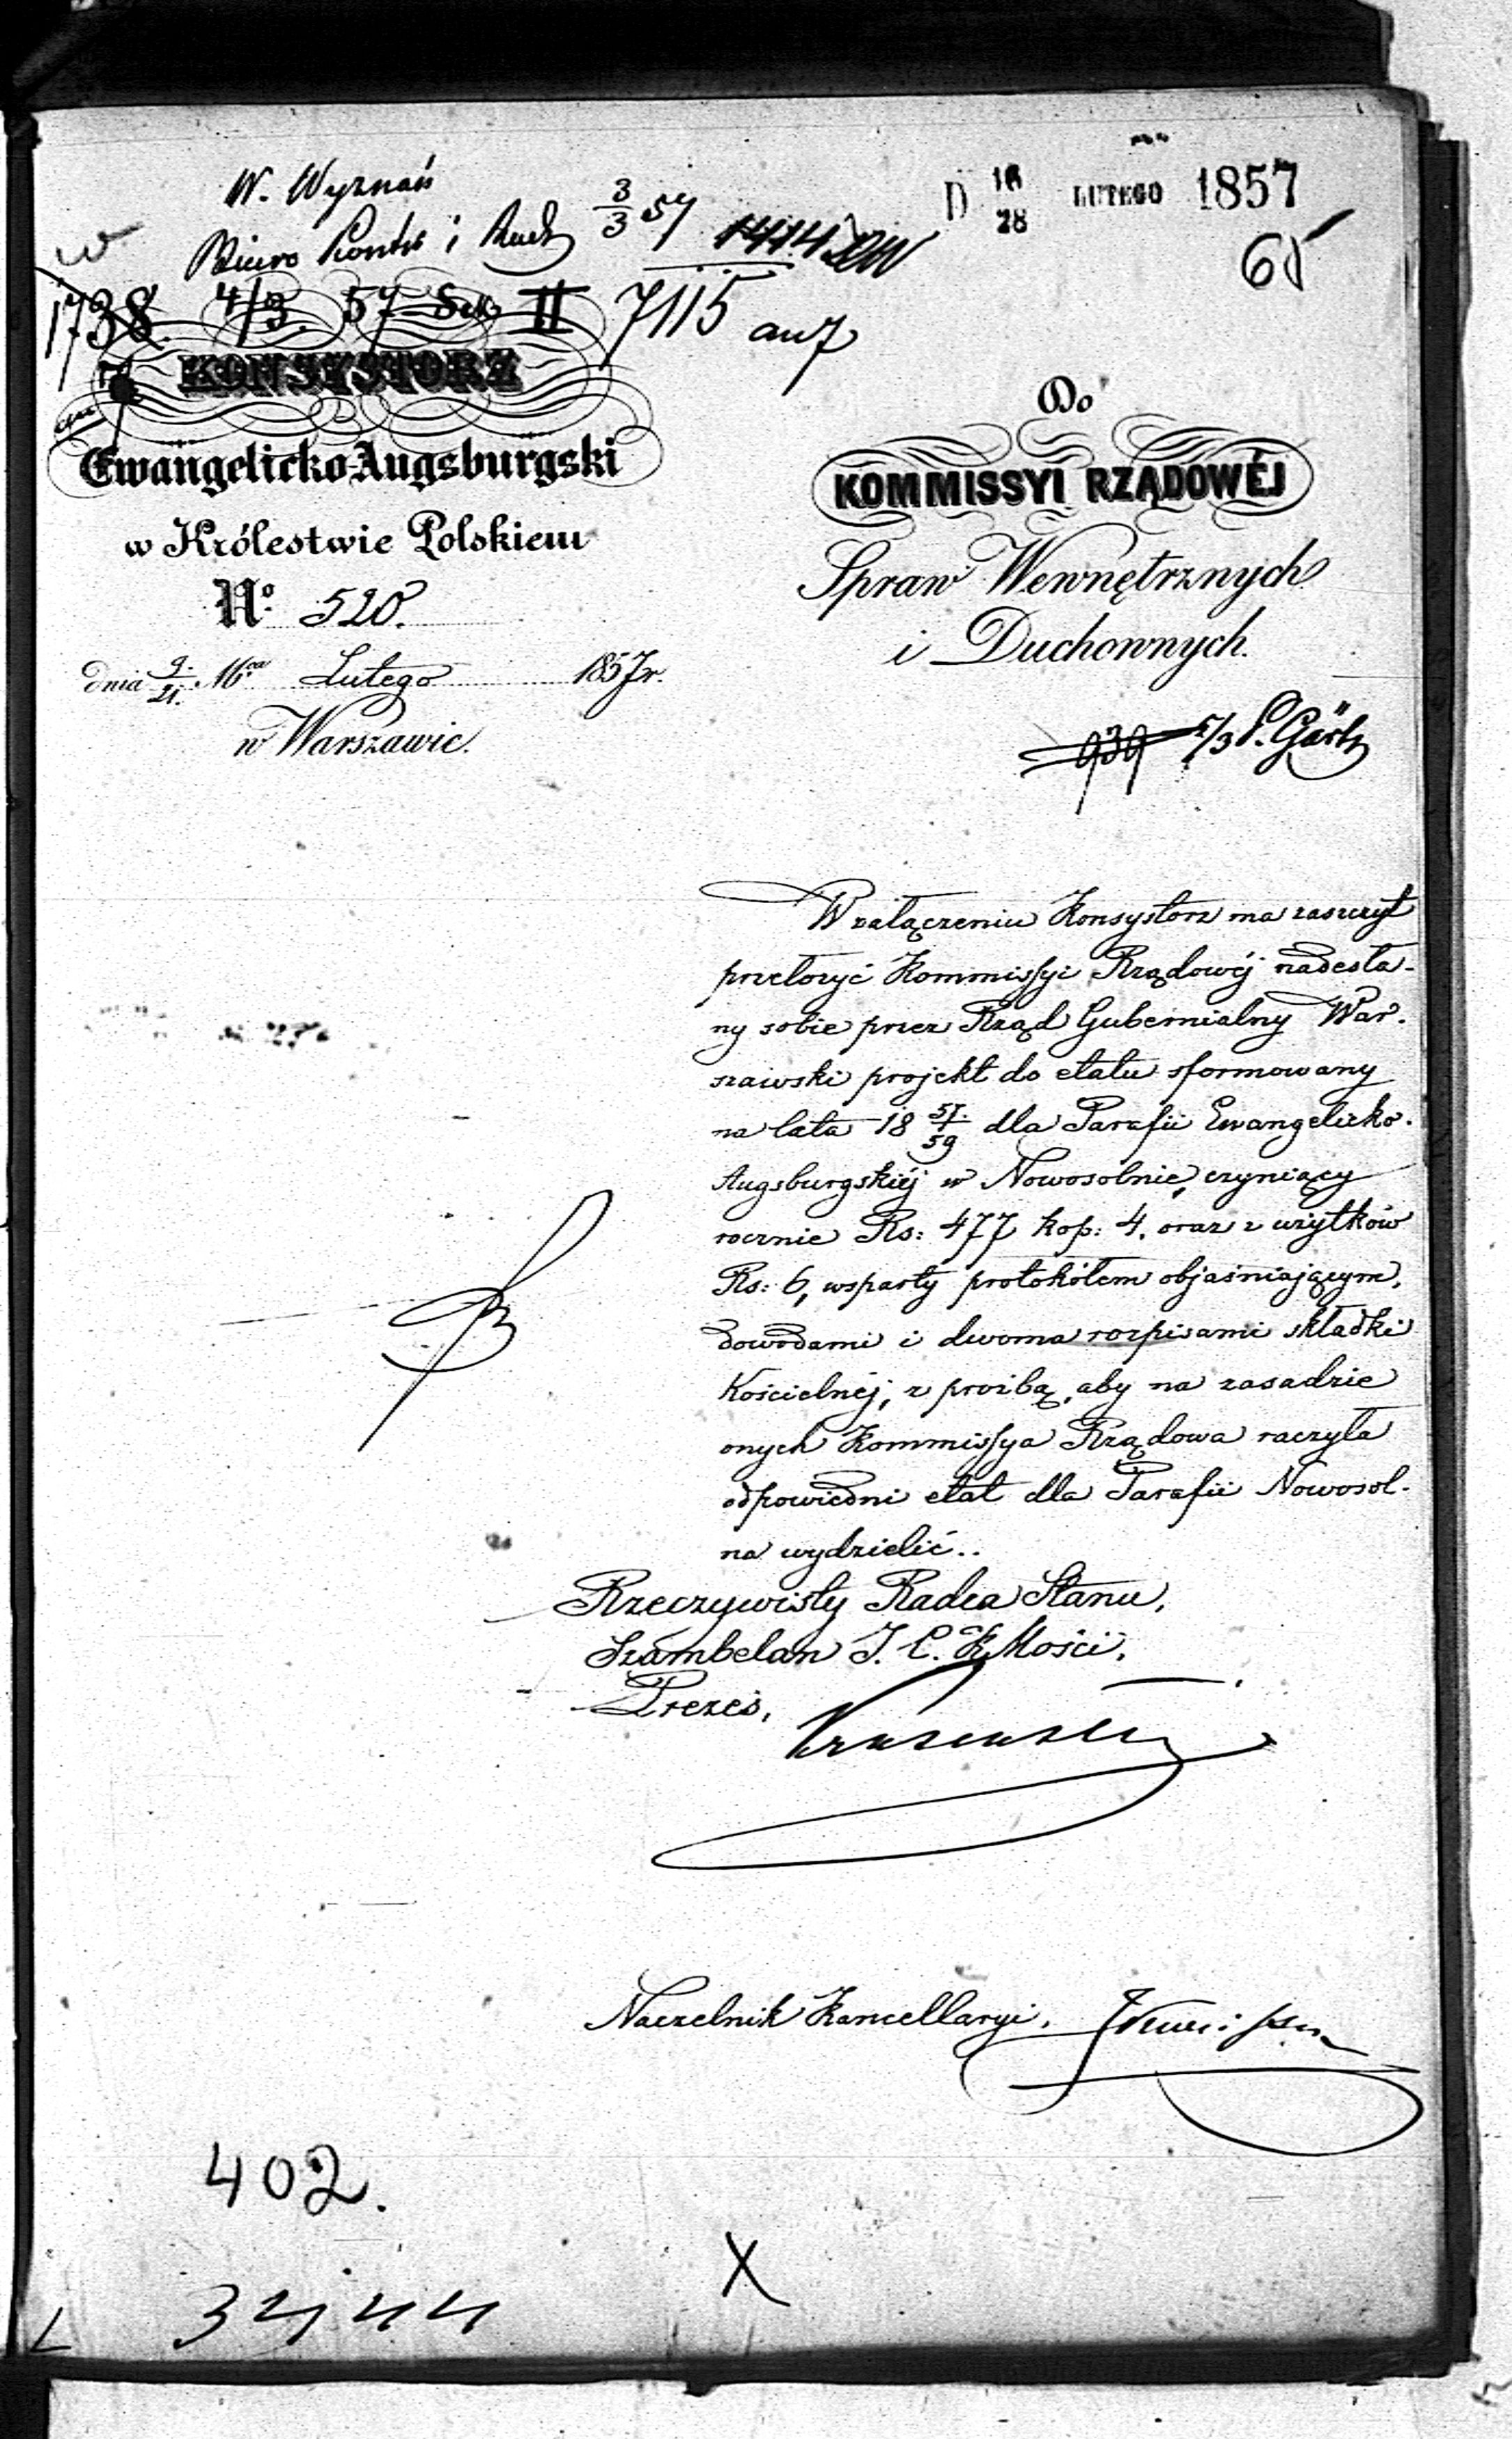 W. Wyznań
Biuro Kontr i Rach 3/3 57 1414
D 16/28 LUTEGO 1857
1738. 4/3. 57 Sek II 7115
KONSYSTORZ
Ewangelicko-Augsburgski
w Królestwie Polskiem
No. 520.
dnia 9/21. Mca Lutego 1857r.
w Warszawie.
Do
KOMMISSYI RZĄDOWÉJ
Spraw Wewnętrznych
i Duchownych.
939
W załączeniu Konsystorz ma zaszczyt
przełożyć Kommissyi Rządowéj nadesła-
ny sobie przez Rząd Gubernialny War-
szawski projekt do etatu sformowany
na lata 18 57/59 dla Parafii Ewangelicko-
Augsburgskiéj w Nowosolnie, czyniący
rocznie Rs: 477 kop: 4. oraz z użytków
Rs: 6, wsparty protokółem objaśniającym,
dowodami i dwoma rozpisami składki
Kościelnéj, z proźbą, aby na zasadzie
onych Kommissya Rządowa raczyła
odpowiedni etat dla Parafii Nowosol-
na wydzielić..
Rzeczywisty Radca Stanu,
Szambelan J. C. K. Mości,
Prezes,
Naczelnik Kancellaryi,
402.
X